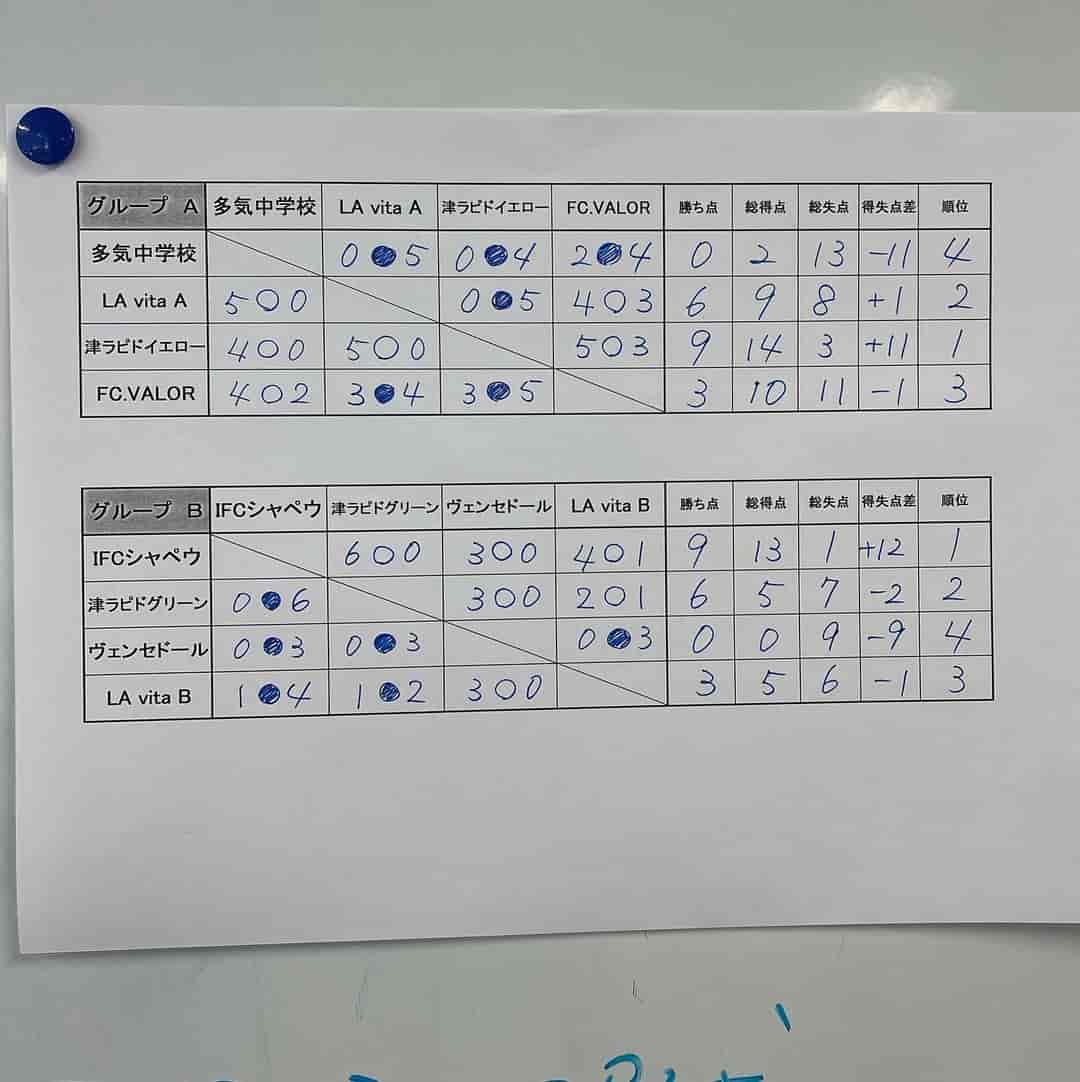 グループ A 多気中学校 LA vita A 津ラピドイエロー FC.VALOR 勝ち点 総得点 総失点 得失点差 順位
多気中学校 0●5 0●4 2●4 0 2 13 -11 4
LA vita A 5○0 0●5 4○3 6 9 8 +1 2
津ラピドイエロー 4○0 5○0 5○3 9 14 3 +11 1
FC.VALOR 4○2 3●4 3●5 3 10 11 -1 3
グループ B IFCシャペウ 津ラピドグリーン ヴェンセドール LA vita B 勝ち点 総得点 総失点 得失点差 順位
IFCシャペウ 6○0 3○0 4○1 9 13 1 +12 1
津ラピドグリーン 0●6 3○0 2○1 6 5 7 -2 2
ヴェンセドール 0●3 0●3 0●3 0 0 9 -9 4
LA vita B 1●4 1●2 3○0 3 5 6 -1 3